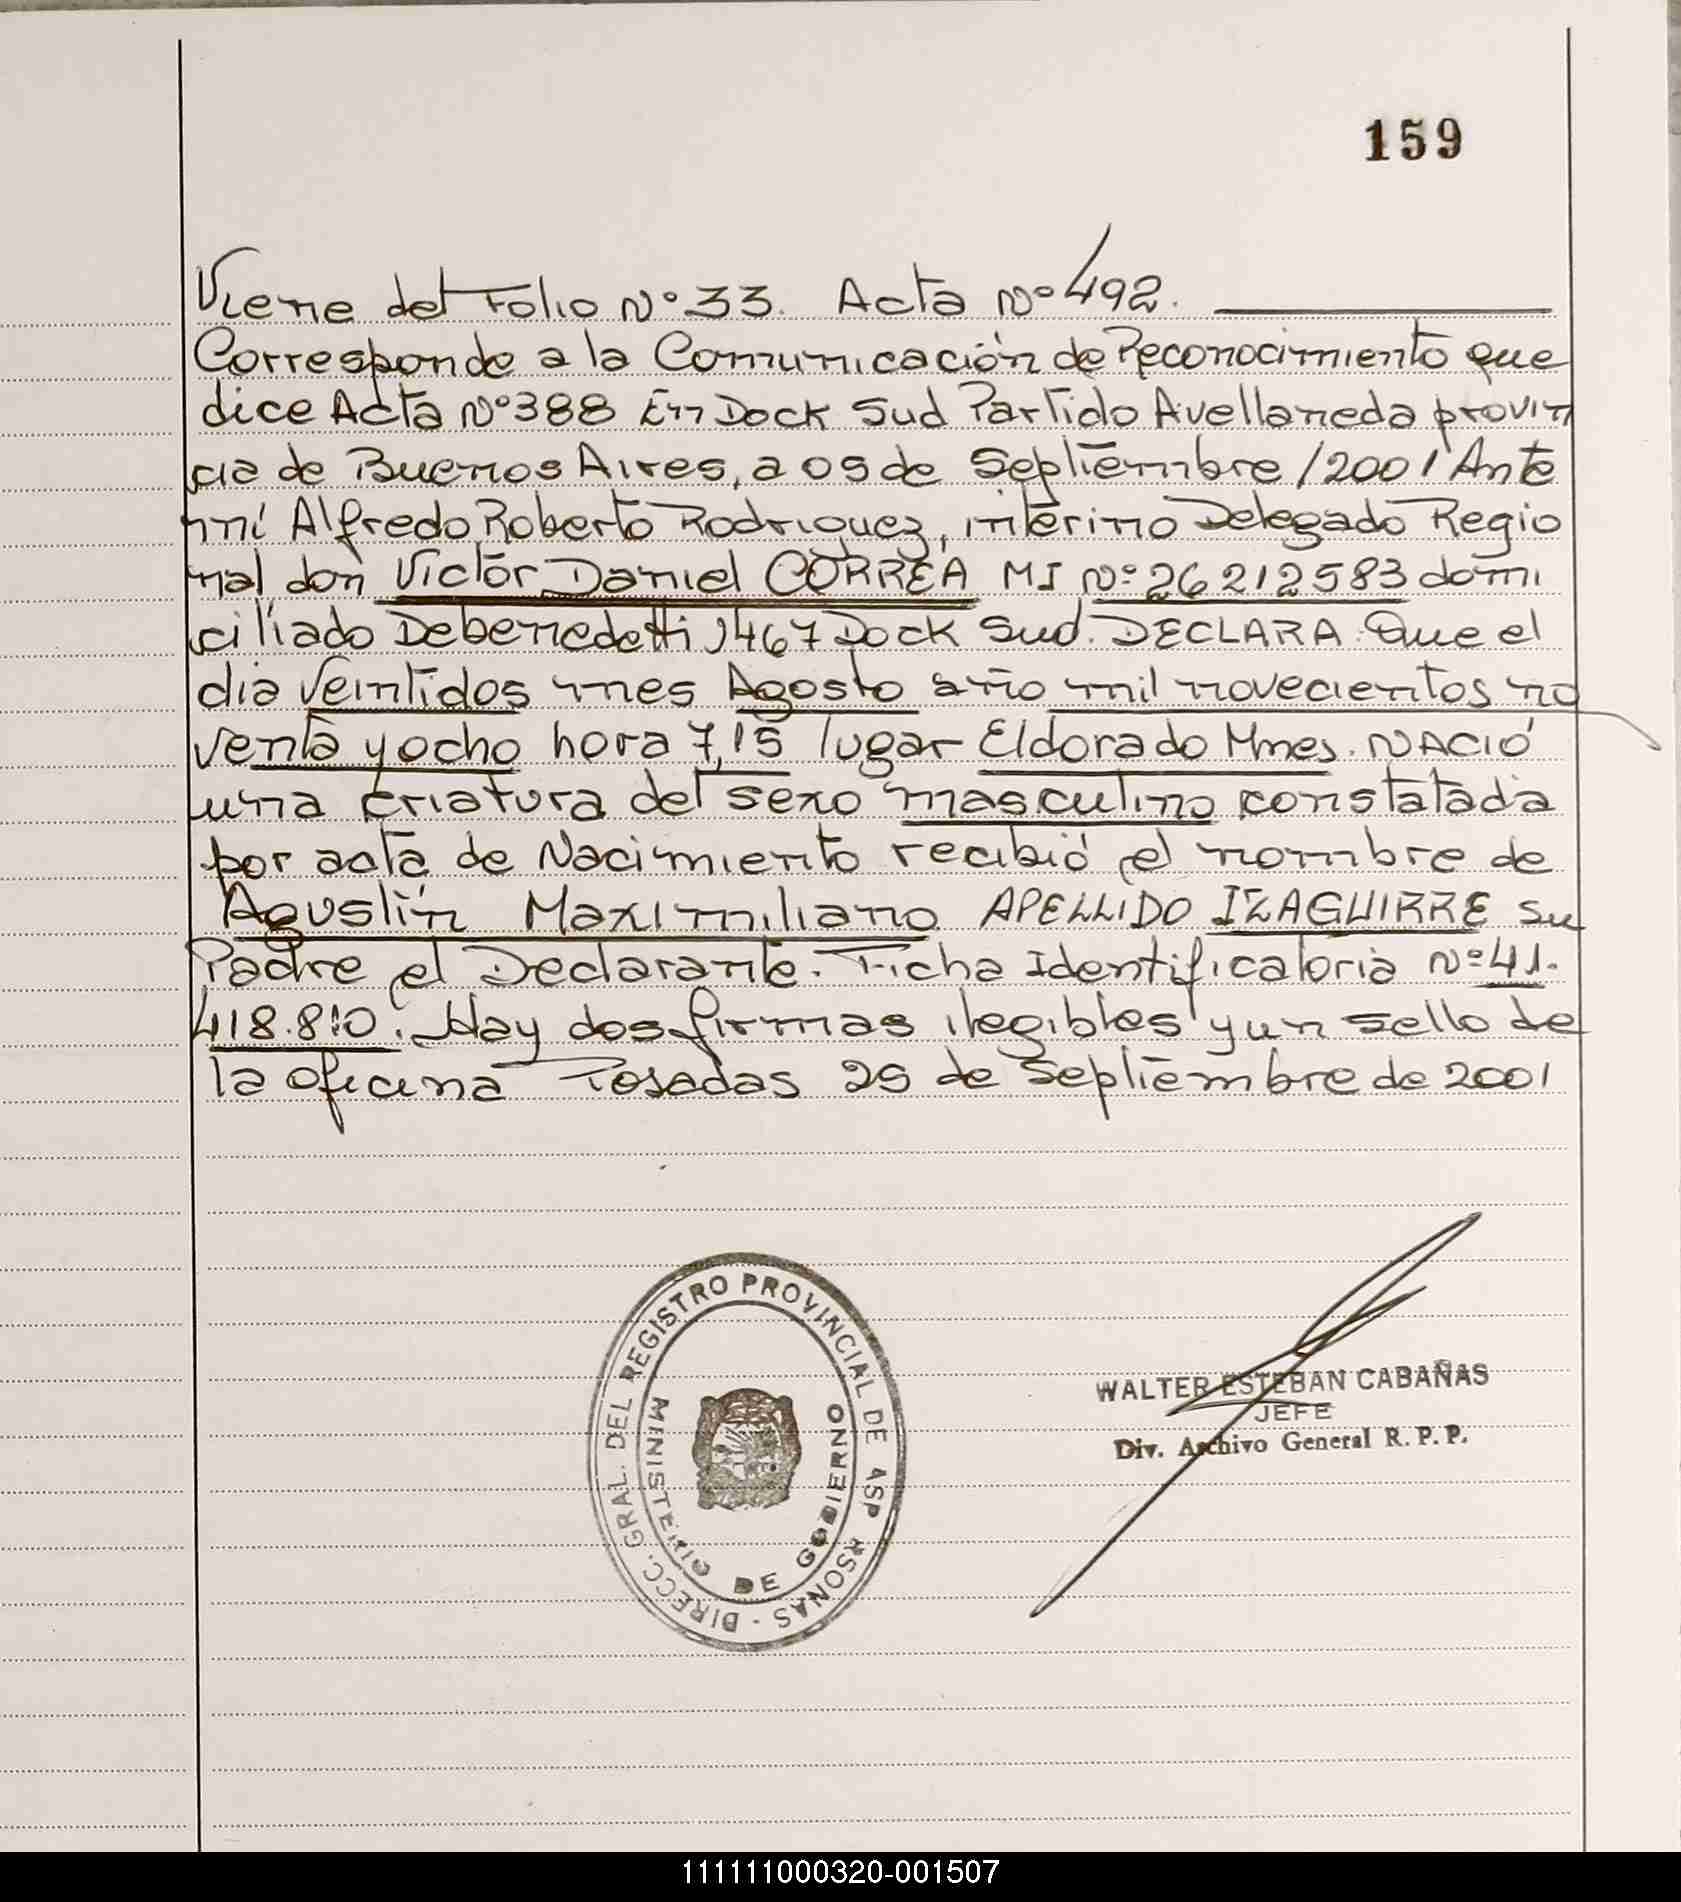 159
Viene del Folio Nº 33. Acta Nº 492.
Corresponde a la Comunicación de Reconocimiento que
dice Acta Nº 388 En Dock Sud Partido Avellaneda provin
cia de Buenos Aires, a 05 de Septiembre/2001 Ante
mí Alfredo Roberto Rodriguez, interino Delegado Regio
nal don Victor Daniel CORREA MI Nº 26212583 domi
ciliado Debenedetti 1467 Dock Sud. DECLARA: Que el
dia Veintidos mes Agosto año mil novecientos no
venta y ocho hora 7,15 lugar Eldorado Mnes. NACIÓ
una criatura del sexo masculino constatada
por acta de Nacimiento recibió el nombre de
Agustín Maximiliano APELLIDO IZAGUIRRE su
Padre el Declarante. Ficha Identificatoria Nº 41.
418.810. Hay dos firmas ilegibles y un sello de
la oficina Posadas 25 de Septiembre de 2001
DIRECC. GRAL. DEL REGISTRO PROVINCIAL DE ASP RSONAS -
MINISTERIO DE GOBIERNO
WALTER ESTEBAN CABAÑAS
JEFE
Div. Archivo General R. P. P.
111111000320-001507